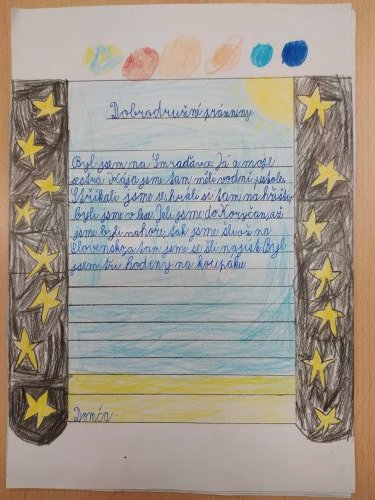 Dobrodružní prázniny
Byl jsem na Smraďavce. Já a moje
sestra Kája jsme tam měli vodní pistole.
Stříkali jsme se hráli si tam na hřišti
byli jsme v lese. Jeli jsme do Koryčan, až
jsme byli nahoře, tak jsme šli až na
Slovensko, a tam jsme se šli najíst. Byl
jsem tři hodiny na koupáku.
Domča